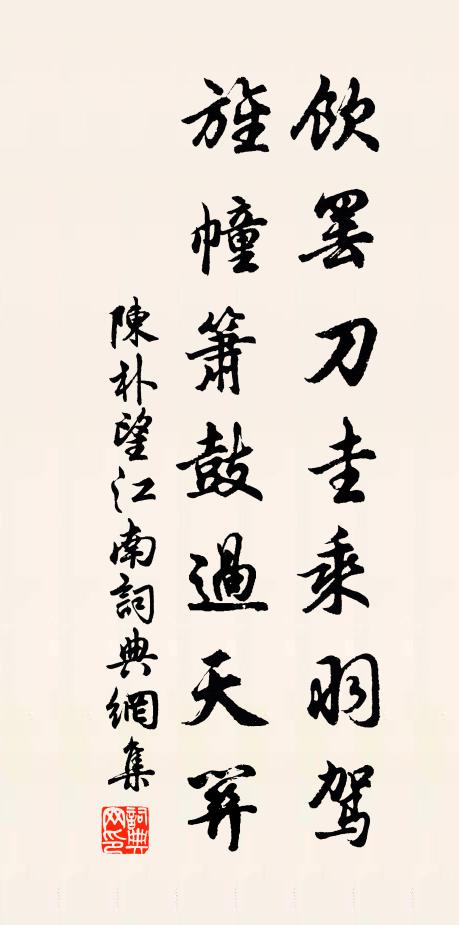 飲罷刀圭乘羽駕
旌幢簫鼓過天關
陳朴望江南詞典網集
詞典网印